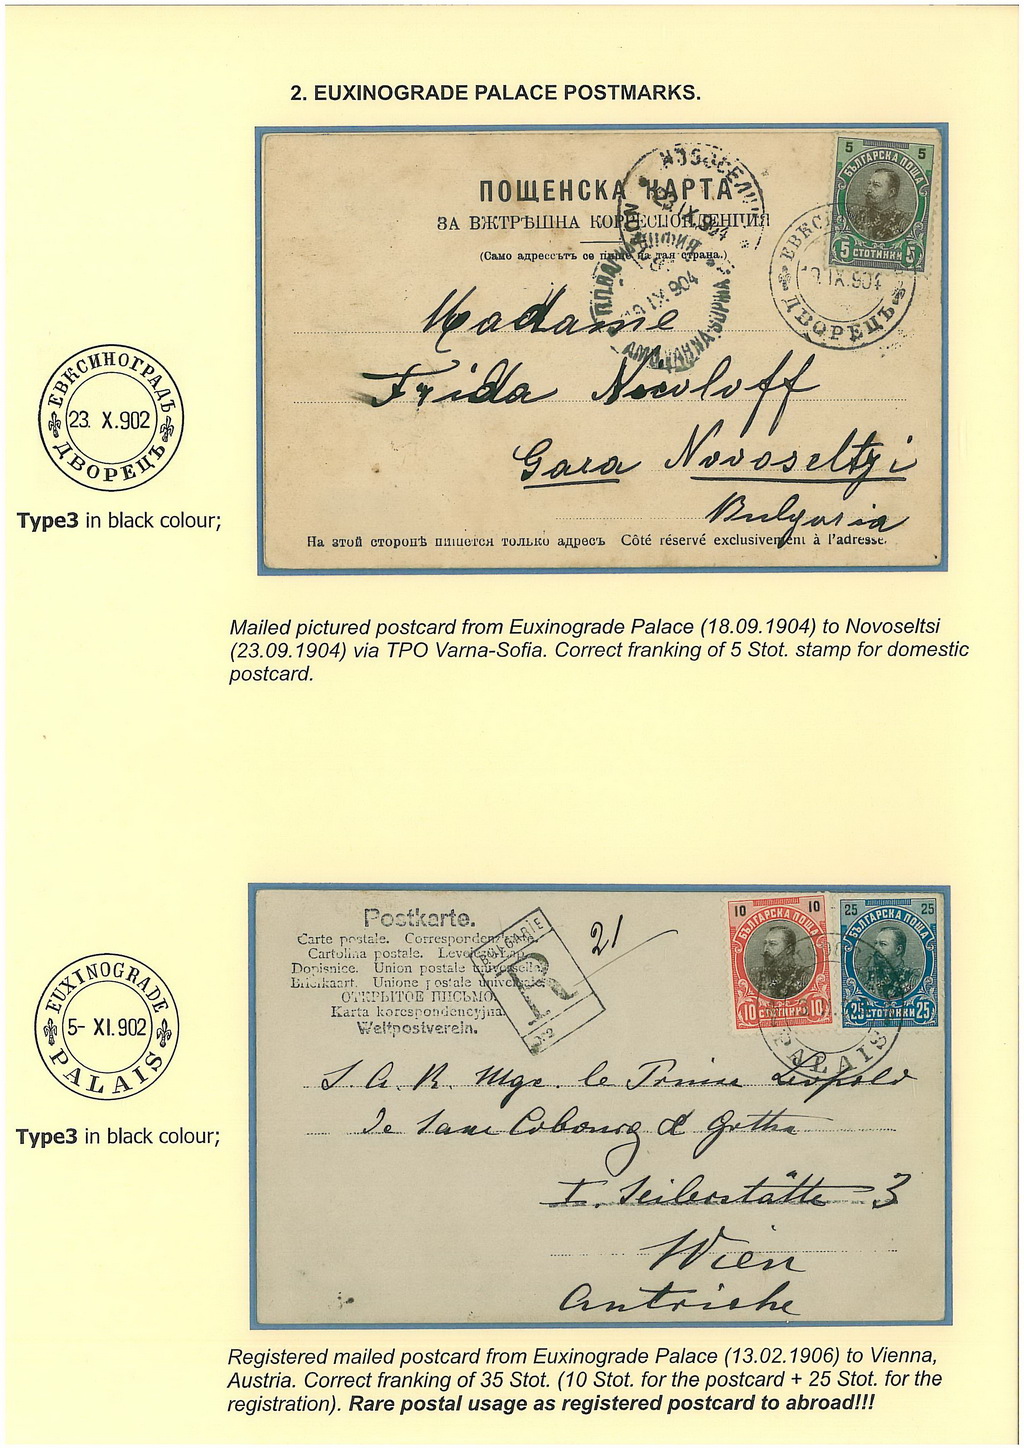 2. EUXINOGRADE PALACE POSTMARKS.
ПОЩЕНСКА КАРТА
ЗА ВѪТРѢШНА КОРРЕСПОНДЕНЦИЯ
(Само адрессътъ се пише на тая страна.)
5 5
БЪЛГАРСКА ПОЩА
5 СТОТИНКИ 5
ЕВКСИ
IX.904
ДВОРЕЦЪ
IX.904
IX 904
VARNA SOPHIA
Madame
Frida Nicoloff
Gara Novoseltzi
Bulgaria
На этой сторонѣ пишется только адресъ Côté réservé exclusivement à l'adresse.
ЕВКСИНОГРАДЪ
23. X.902
ДВОРЕЦЪ
Type3 in black colour;
Mailed pictured postcard from Euxinograde Palace (18.09.1904) to Novoseltsi
(23.09.1904) via TPO Varna-Sofia. Correct franking of 5 Stot. stamp for domestic
postcard.
Postkarte.
Carte postale. Correspondenzkarte
Cartolina postale. Levelező-Lap.
Dopisnice. Union postale universelle
Briefkaart. Unione postale universale
ОТКРЫТОЕ ПИСЬМО.
Karta korespondencyjna
Weltpostverein.
BULGARIE
R
21
10 10
БЪЛГАРСКА ПОЩА
10 СТОТИНКИ 10
25 25
БЪЛГАРСКА ПОЩА
25 СТОТИНКИ 25
PALAIS
S. A. R. Mgr. le Prince Leopold
de Saxe Cobourg & Gotha
I. Seilerstätte 3
Wien
Autriche
EUXINOGRADE
5- XI.902
PALAIS
Type3 in black colour;
Registered mailed postcard from Euxinograde Palace (13.02.1906) to Vienna,
Austria. Correct franking of 35 Stot. (10 Stot. for the postcard + 25 Stot. for the
registration). Rare postal usage as registered postcard to abroad!!!